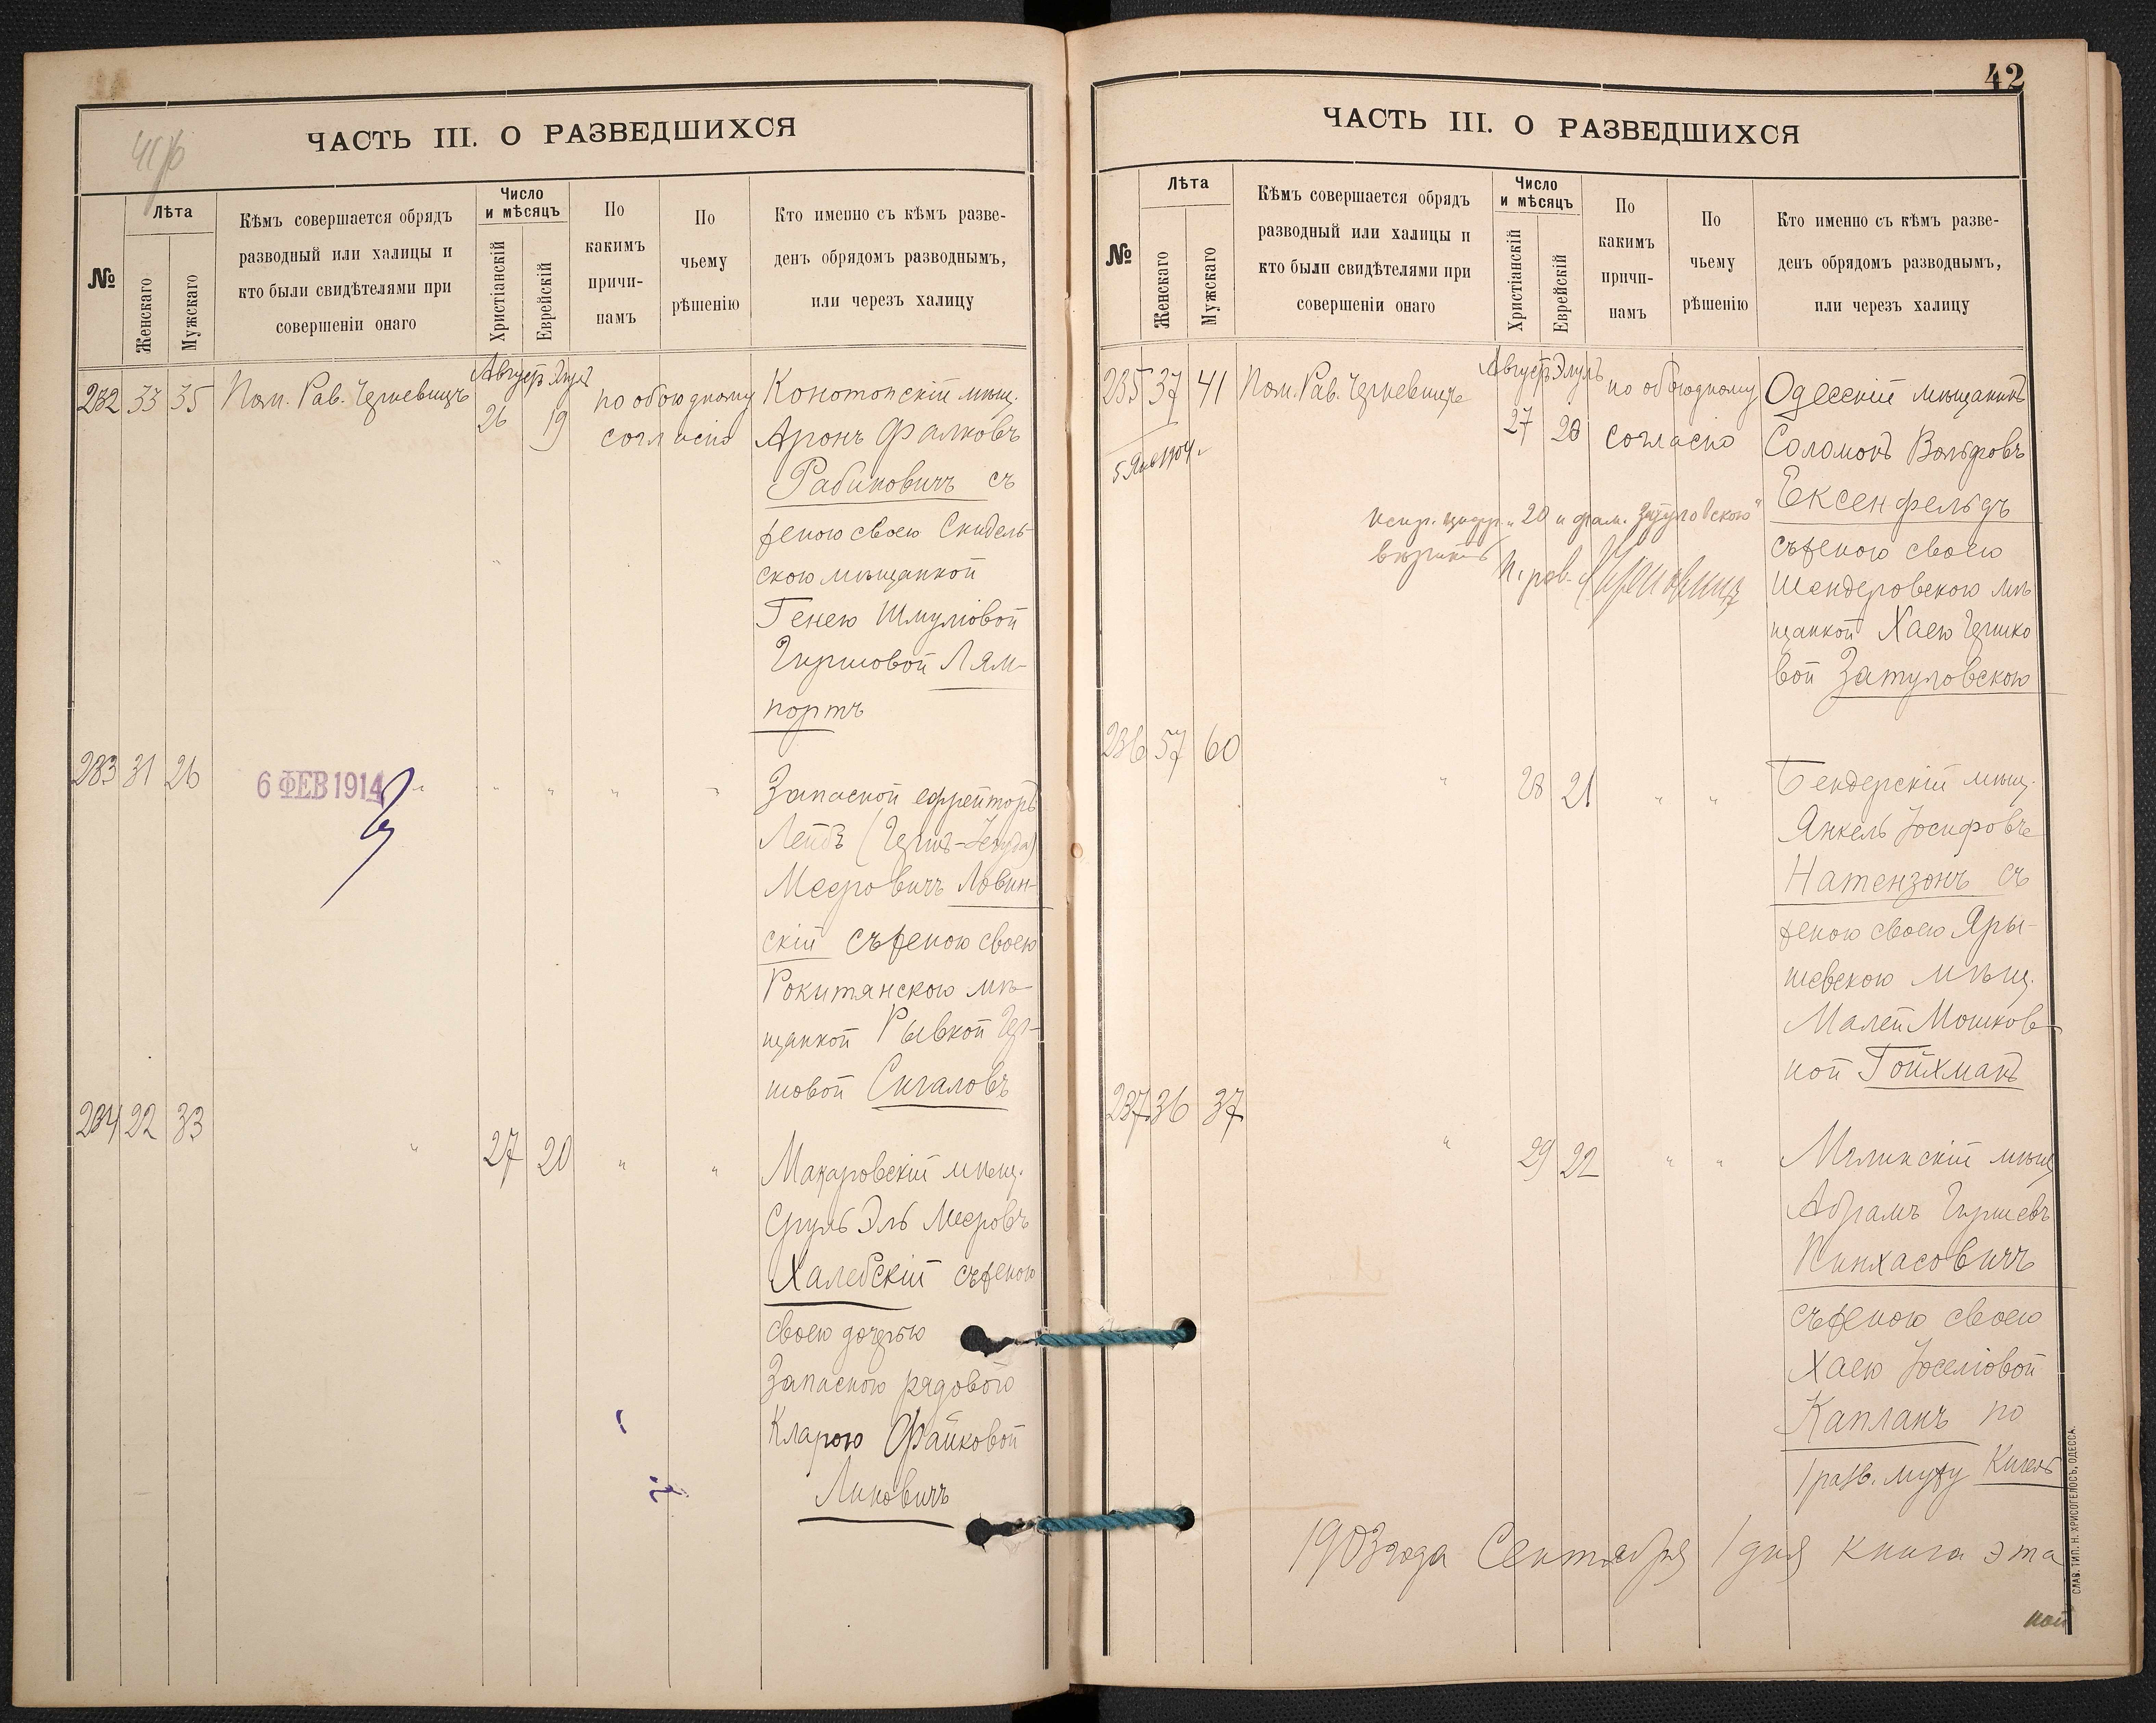 41об
ЧАСТЬ III. О РАЗВЕДШИХСЯ
№
Лѣта
Женскаго
Мужскаго
Кѣмъ совершается обрядъ
разводный или халицы и
кто были свидѣтелями при
совершеніи онаго
Число
и мѣсяцъ
Христіанскій
Еврейскій
По
какимъ
причи-
намъ
По
чьему
рѣшенію
Кто именно съ кѣмъ разве-
денъ обрядомъ разводнымъ,
или черезъ халицу
232 33 35 Пом. Рав. Августъ Элулъ
26 19
по обоюдному
согласію
Конотопскій мѣщ.
Аронъ Фалковъ
Рабиновичъ съ
женою своею Скидель-
скою мѣщанкой
Генею Шмуліовой
Гиршовой Лям-
портъ
233 31 26 6 ФЕВ 1914 " " " " "
Запасной ефрейторъ
Лейбъ (Гершъ-Іегуда)
Мееровичъ Ловин-
скій съ женою своею
Рокитянскою мѣ-
щанкой Рывкой Гер-
шовой Сигаловъ
234 22 33 " 27 20 " "
Макаровскій мѣщ.
Сруль Эль Мееровъ
Халебскій съ женою
своею дочерью
Запасного рядового
Кларою Файковой
Линовичъ
42
ЧАСТЬ III. О РАЗВЕДШИХСЯ
№
Лѣта
Женскаго
Мужскаго
Кѣмъ совершается обрядъ
разводный или халицы и
кто были свидѣтелями при
совершеніи онаго
Число
и мѣсяцъ
Христіанскій
Еврейскій
По
какимъ
причи-
намъ
По
чьему
рѣшенію
Кто именно съ кѣмъ разве-
денъ обрядомъ разводнымъ,
или черезъ халицу
235 37 41 Пом. Рав. Августъ Элулъ
27 20
по обоюдному
согласію
5 Янв 1904.
испр. цифр. „20 и фам. Затуловскою"
П. рав.
Одесскій мѣщанинъ
Соломонъ Вольфовъ
Ексенфельдъ
съ женою своею
Шендеровскою мѣ
щанкой Хаею Гершко
вой Затуловскою
236 57 60 " 28 21 " "
Бендерскій мѣщ.
Янкель Іосифовъ
Натензонъ съ
женою своею Яры-
шевскою мѣщ.
Малей Мошков-
ной Гойхманъ
237 36 37 " 29 22 " "
Малинскій мѣщ
Абрамъ Гиршевъ
Пинхасовичъ
съ женою своею
Хаею Іоселіовой
Капланъ по
1 разв. мужу
1903 года Сентября 1 дня книга эта
ной
СЛАВ. ТИП. Н. ХРИСОГЕЛОСЪ, ОДЕССА.